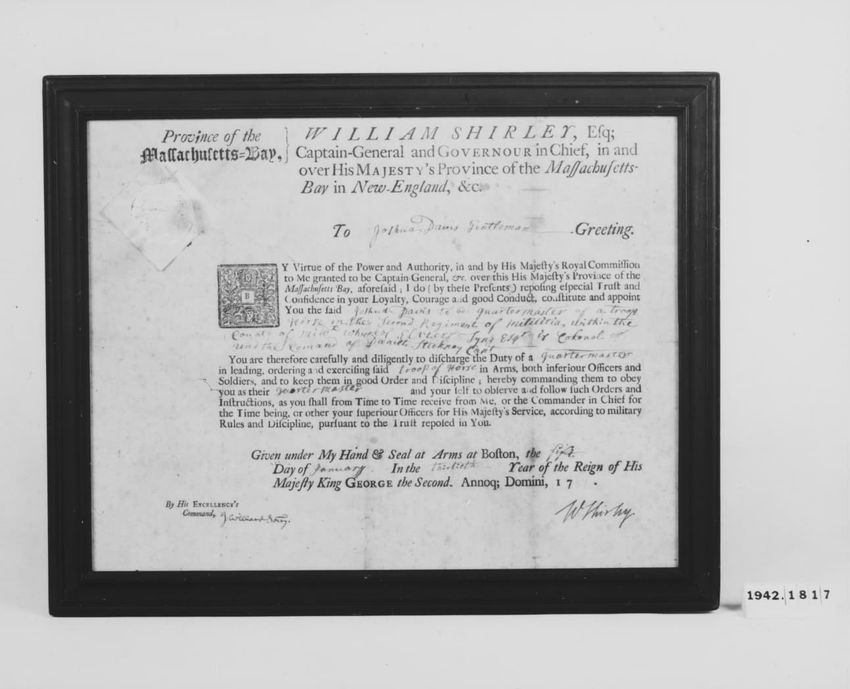 Province of the
Maſſachuſetts=Bay,
WILLIAM SHIRLEY, Eſq;
Captain-General and GOVERNOUR in Chief, in and
over His MAJESTY's Province of the Maſſachuſetts-
Bay in New-England, &c.
To Joshua Davis Gentleman Greeting.
BY Virtue of the Power and Authority, in and by His Majeſty's Royal Commiſſion
to Me granted to be Captain General, &c. over this His Majeſty's Province of the
Maſſachuſetts Bay, aforeſaid; I do (by theſe Preſents) repoſing eſpecial Truſt and
Confidence in your Loyalty, Courage and good Conduct, conſtitute and appoint
You the ſaid Joshua Davis to be quartermaster of a troop
Horse in the Second Regiment of Militia, within the
County of Midx Whereof Eleazer Tyng Esqr is Colonel
under the Comand of Daniel Stickney Capt
You are therefore carefully and diligently to diſcharge the Duty of a quartermaster
in leading, ordering and exerciſing ſaid troop of Horse in Arms, both inferiour Officers and
Soldiers, and to keep them in good Order and Diſcipline; hereby commanding them to obey
you as their quartermaster and your ſelf to obſerve and follow ſuch Orders and
Inſtructions, as you ſhall from Time to Time receive from Me, or the Commander in Chief for
the Time being, or other your ſuperiour Officers for His Majeſty's Service, according to military
Rules and Diſcipline, purſuant to the Truſt repoſed in You.
Given under My Hand & Seal at Arms at Boſton, the
Day of January In the thirtieth Year of the Reign of His
Majeſty King GEORGE the Second. Annoq; Domini, 17 .
By His EXCELLENCY's
Command,
J Willard Secry.
W Shirley
1942.1817